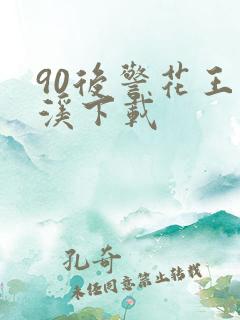 90後警花王
溪下載
孔奇
未任同意禁止转载